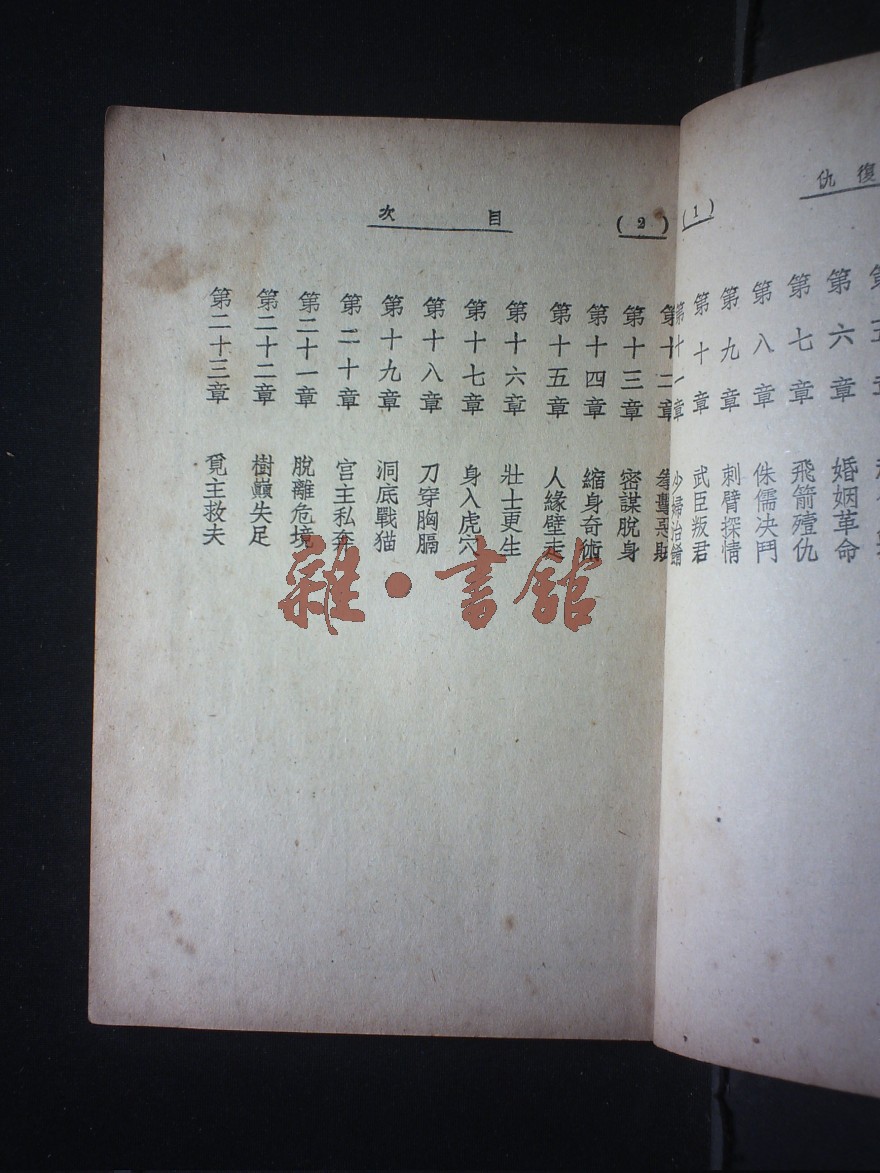 復仇
(1)
第六章 婚姻革命
第七章 飛箭殪仇
第八章 侏儒決鬥
第九章 刺臂探情
第十章 武臣叛君
第十一章 少婦治
目次
(2)
第十二章
第十三章 密謀脫身
第十四章 縮身奇術
第十五章 人緣壁走
第十六章 壯士更生
第十七章 身入虎穴
第十八章 刀穿胸膈
第十九章 洞底戰猫
第二十章 宮主私奔
第二十一章 脫離危境
第二十二章 樹巔失足
第二十三章 覓主救夫
雜·書館